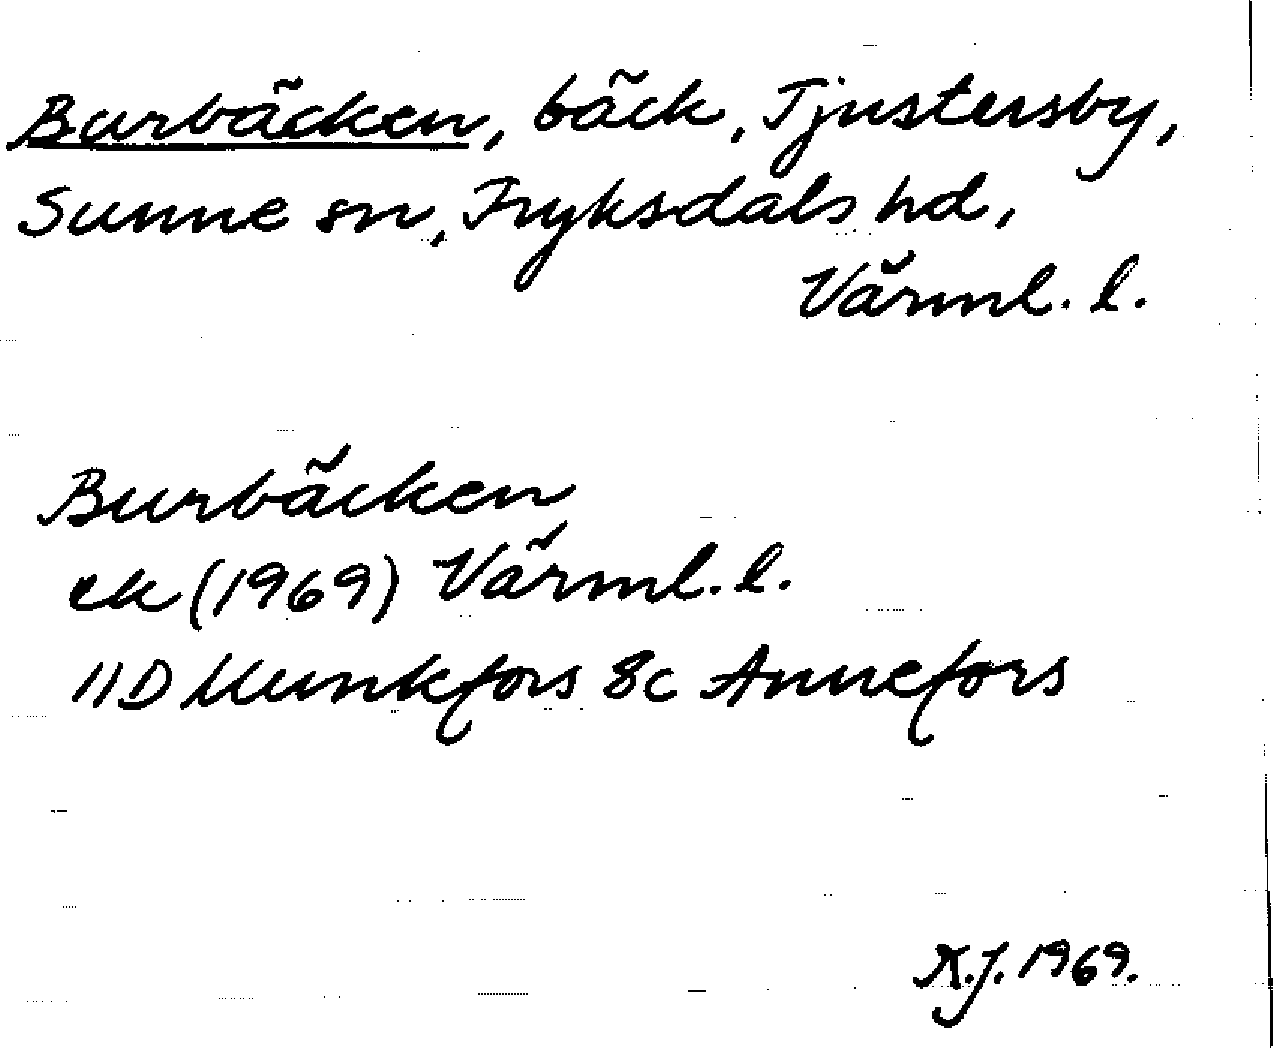 Burbäcken, bäck, Tjustersby,
Sunne sn, Fryksdals hd,
Värml. l.
Burbäcken
ek (1969) Värml. l.
11D Munkfors 8c Annefors
K.J. 1969.